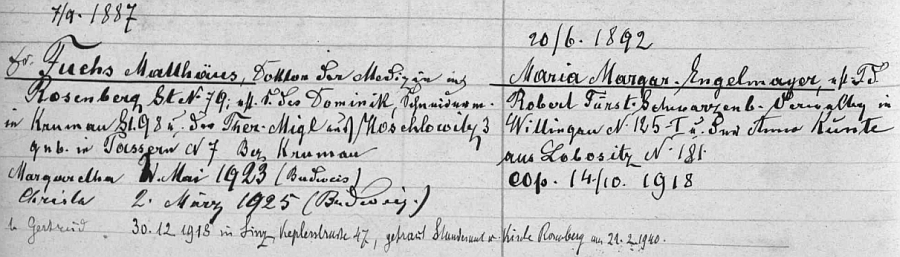 7/9. 1887
20/6. 1892
Dr. Fuchs Matthäus, Doktor der Medizin aus
Maria Margar. Engelmayer, ehl. T. d.
Rosenberg St. N. 79, ehl. S. des Dominik, Schneiderm.
Robert Fürst-Schwarzenb. Verwalter in
in Krumau St. 98 u. der Ther. Migl aus Moschlowitz 3
Wittingau N. 125-I u. der Anna Kunte
geb. in Passern N 7 Bez. Krumau
aus Lobositz N. 181.
Margaretha 1. Mai 1923 (Budweis)
cop. 14/10. 1918
Christa 2. März 1925 (Budweis.)
Gertrud 30.12 1918 in Linz, Keplerstraße 47, getraut Standesamt u. Kirche Rosenberg am 21.2.1940.